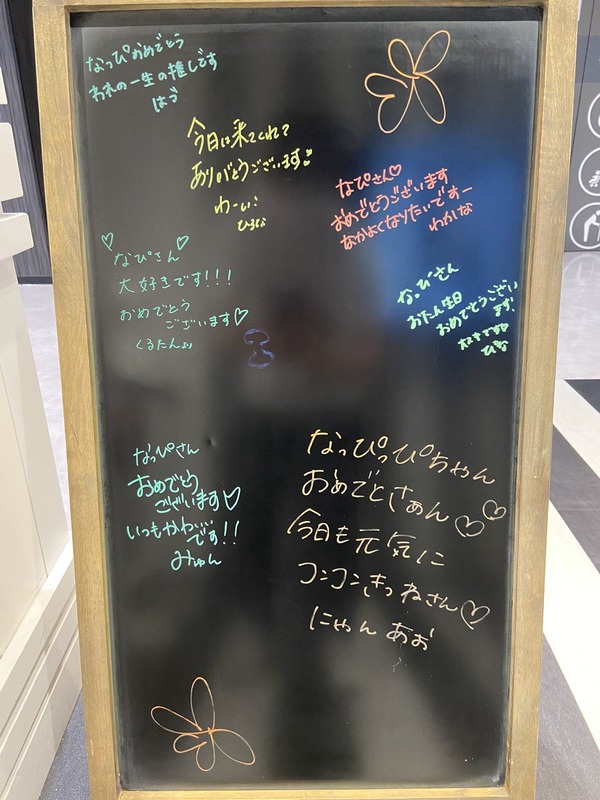 なっぴおめでとう
おれの一生の推しです
はづ
今日は来てくれて
ありがとうございます
わーい
ひろな
なぴさん♡
おめでとうございます
なかよくなりたいですー
わかな
♡なぴさん♡
大好きです!!!
おめでとう
ございます♡
くるたん
なっぴさん
おたん生日
おめでとうござい
ます!
好きです
ひな
なっぴさん
おめでとう
ございます♡
いつもかわいい
です!!
みゅん
なっぴっぴちゃん
おめでとさぁん♡♡
今日も元気に
コンコンきつねさん♡
にゃん あお